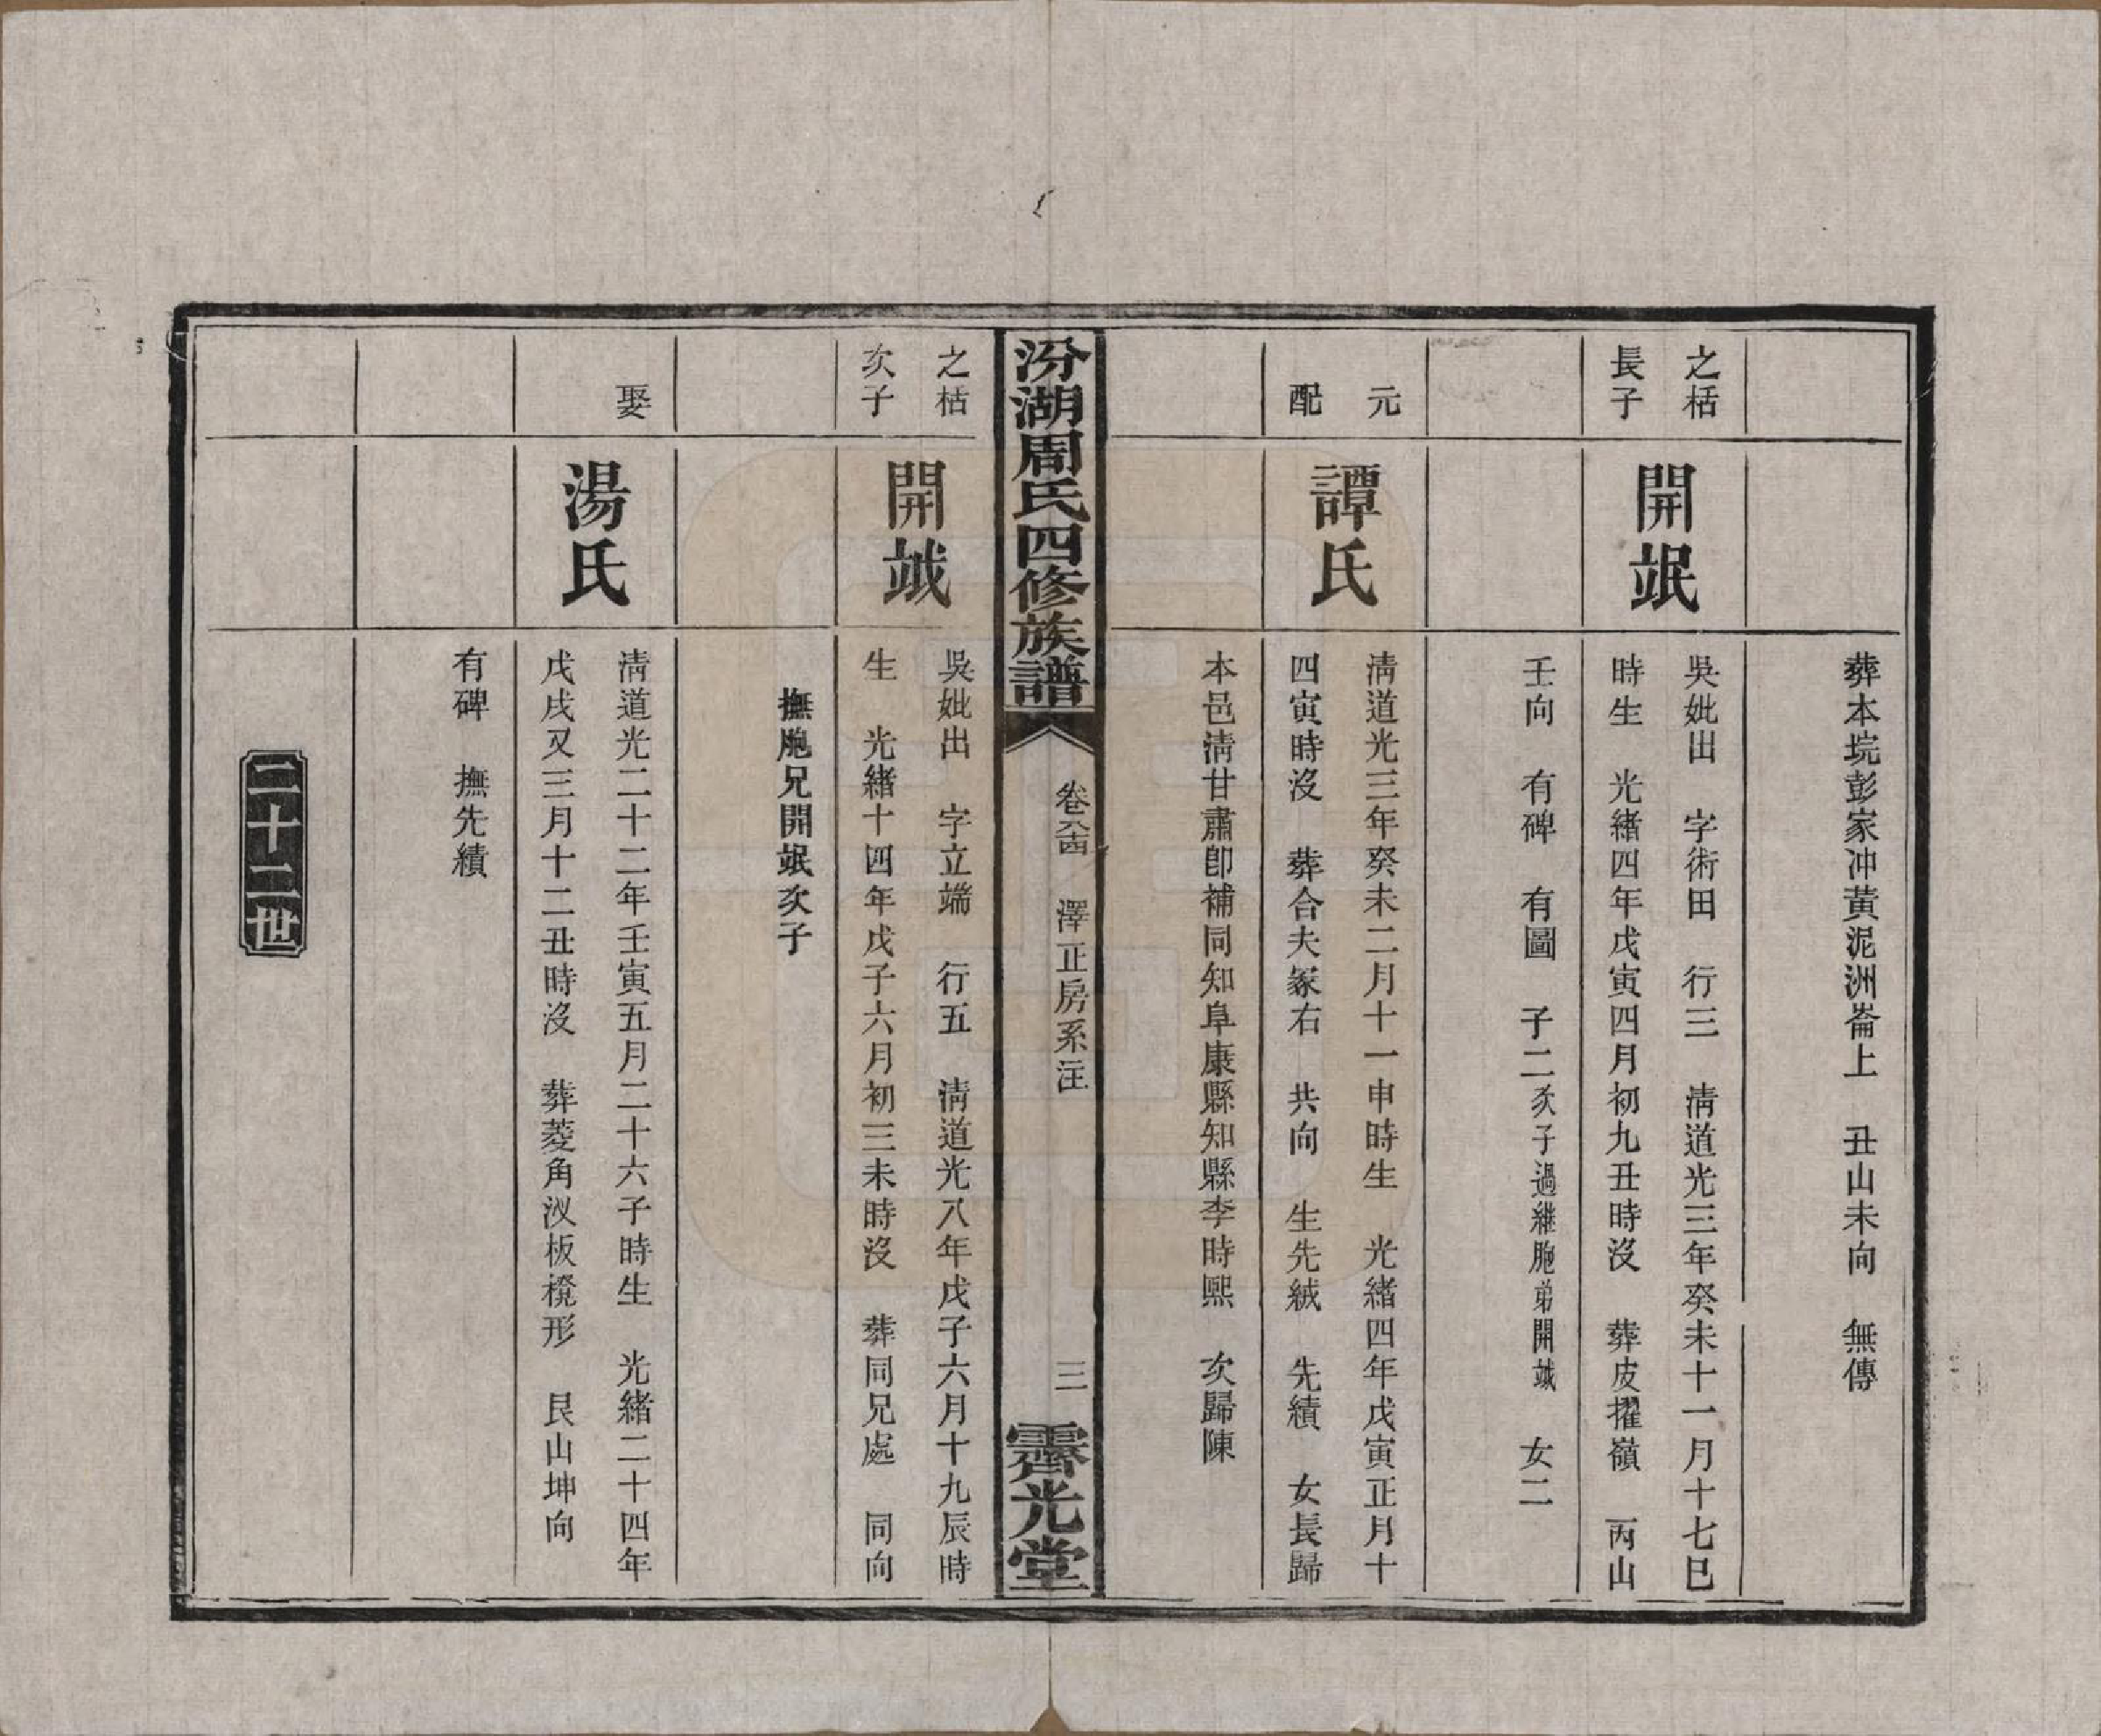 葬本垸彭家冲黃泥洲崙上　丑山未向　無傳
之梏
長子
開垊
吳妣出　字術田　行三　淸道光三年癸未十一月十七巳
時生　光緖四年戊寅四月初九丑時沒　葬皮擢嶺　丙山
壬向　有碑　有圖　子二次子過繼胞弟開竤　女二
元
配
譚氏
淸道光三年癸未二月十一申時生　光緖四年戊寅正月十
四寅時沒　葬合夫冢右　共向　生先絨　先績　女長歸
本邑淸甘肅卽補同知阜康縣知縣李時熙　次歸陳
汾湖周氏四修族譜
卷六十四　澤正房系注
三
霽光堂
之梏
次子
開
吳妣出　字立端　行五　淸道光八年戊子六月十九辰時
生　光緖十四年戊子六月初三未時沒　葬同兄處　同向
撫胞兄開次子
娶
湯氏
淸道光二十二年壬寅五月二十六子時生　光緖二十四年
戊戌又三月十二丑時沒　葬菱角汊板櫈形　艮山坤向
有碑　撫先績
二十二世